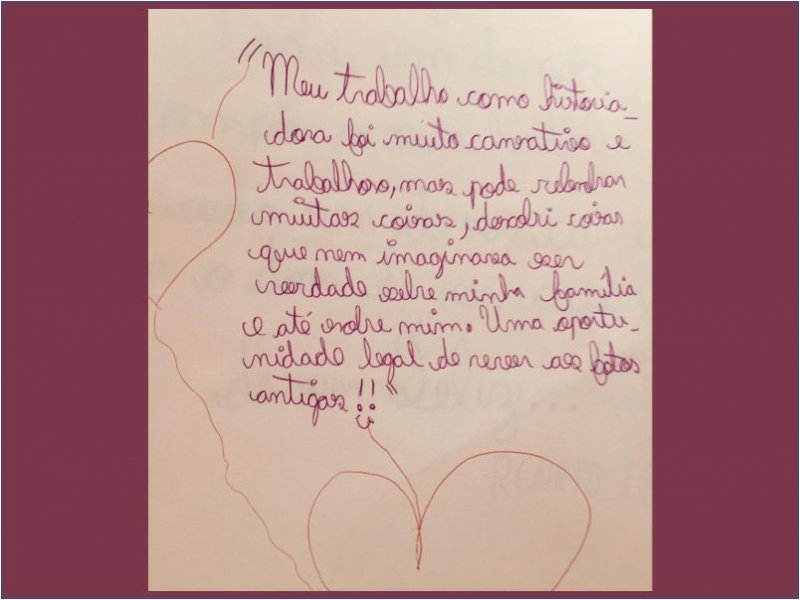 "Meu trabalho como historia-
dora foi muito cansativo e
trabalhoso, mas pode relembrar
muitas coisas, descobri coisas
que nem imaginava ser
verdade sobre minha família
e até sobre mim. Uma oportu-
nidade legal de rever as fotos
antigas!!"